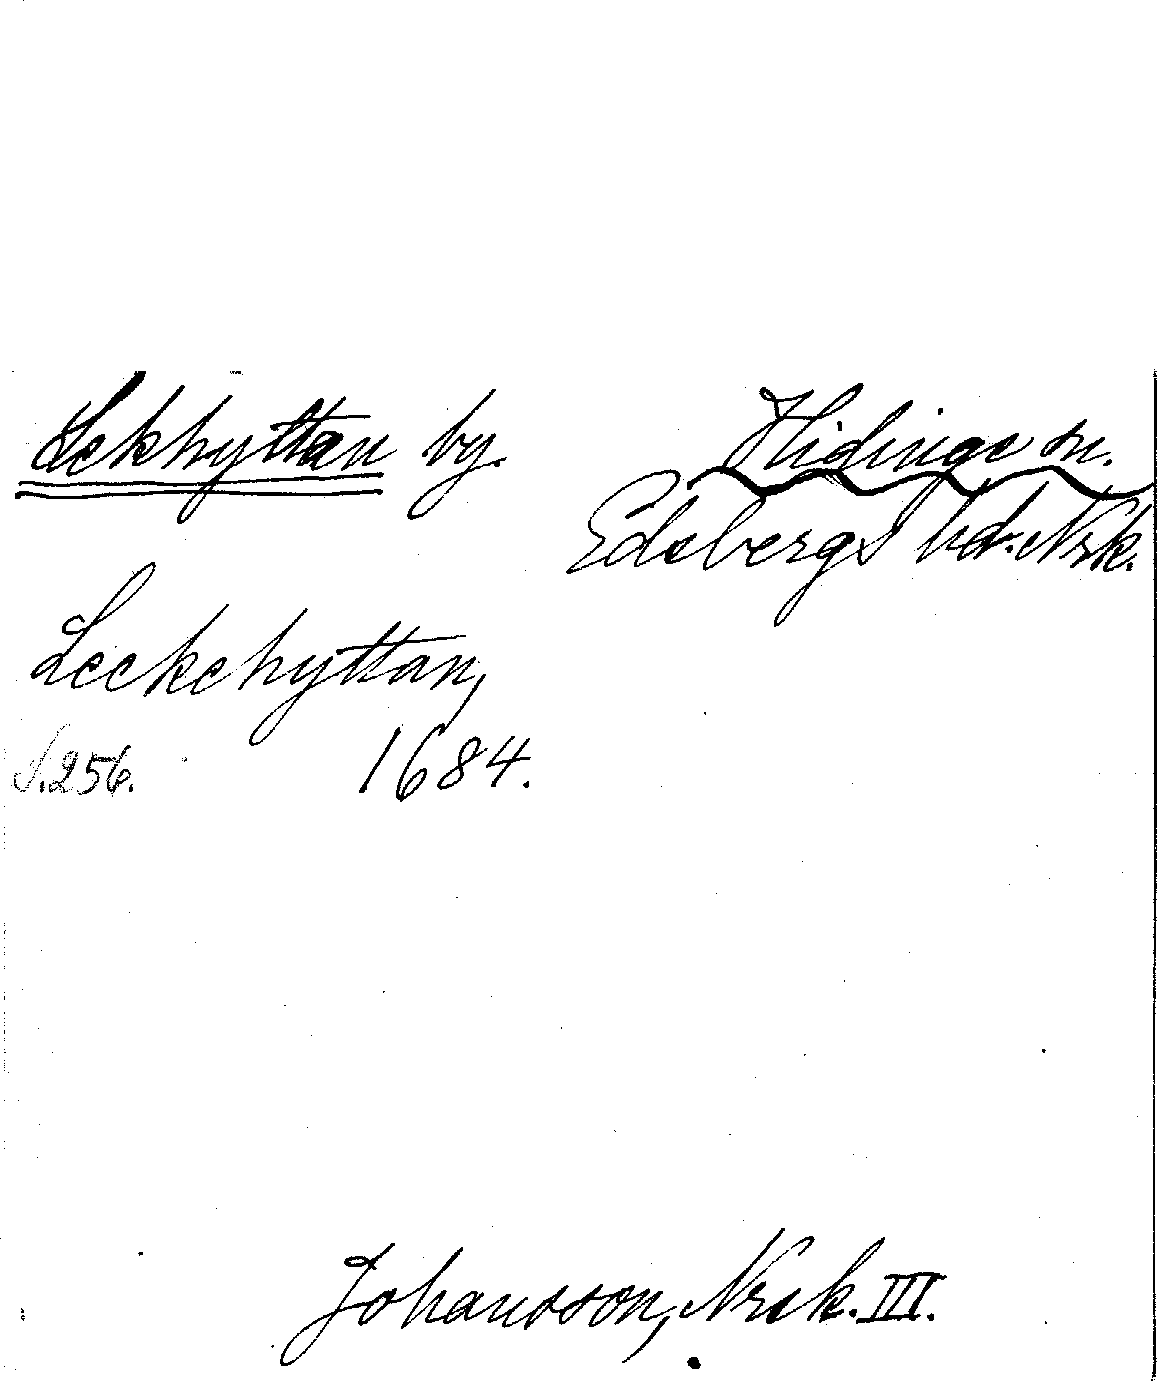 Lekhyttan by.
Hidinge sn.
Edsbergs hd. Nrk.
Leckehyttan,
S. 256. 1684.
Johansson, Nrsk. III.